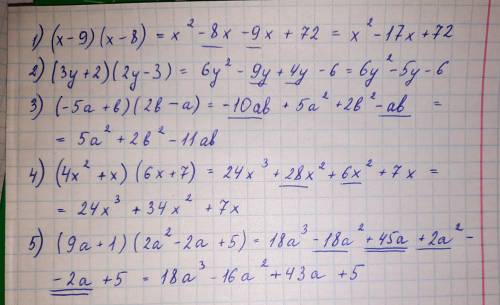 1) (x-9)(x-8) = x² - 8x - 9x + 72 = x² - 17x + 72
2) (3y+2)(2y-3) = 6y² - 9y + 4y - 6 = 6y² - 5y - 6
3) (-5a+в)(2в-a) = -10aв + 5a² + 2в² - aв =
= 5a² + 2в² - 11aв
4) (4x² + x)(6x+7) = 24x³ + 28x² + 6x² + 7x =
= 24x³ + 34x² + 7x
5) (9a+1)(2a² - 2a + 5) = 18a³ - 18a² + 45a + 2a² -
- 2a + 5 = 18a³ - 16a² + 43a + 5